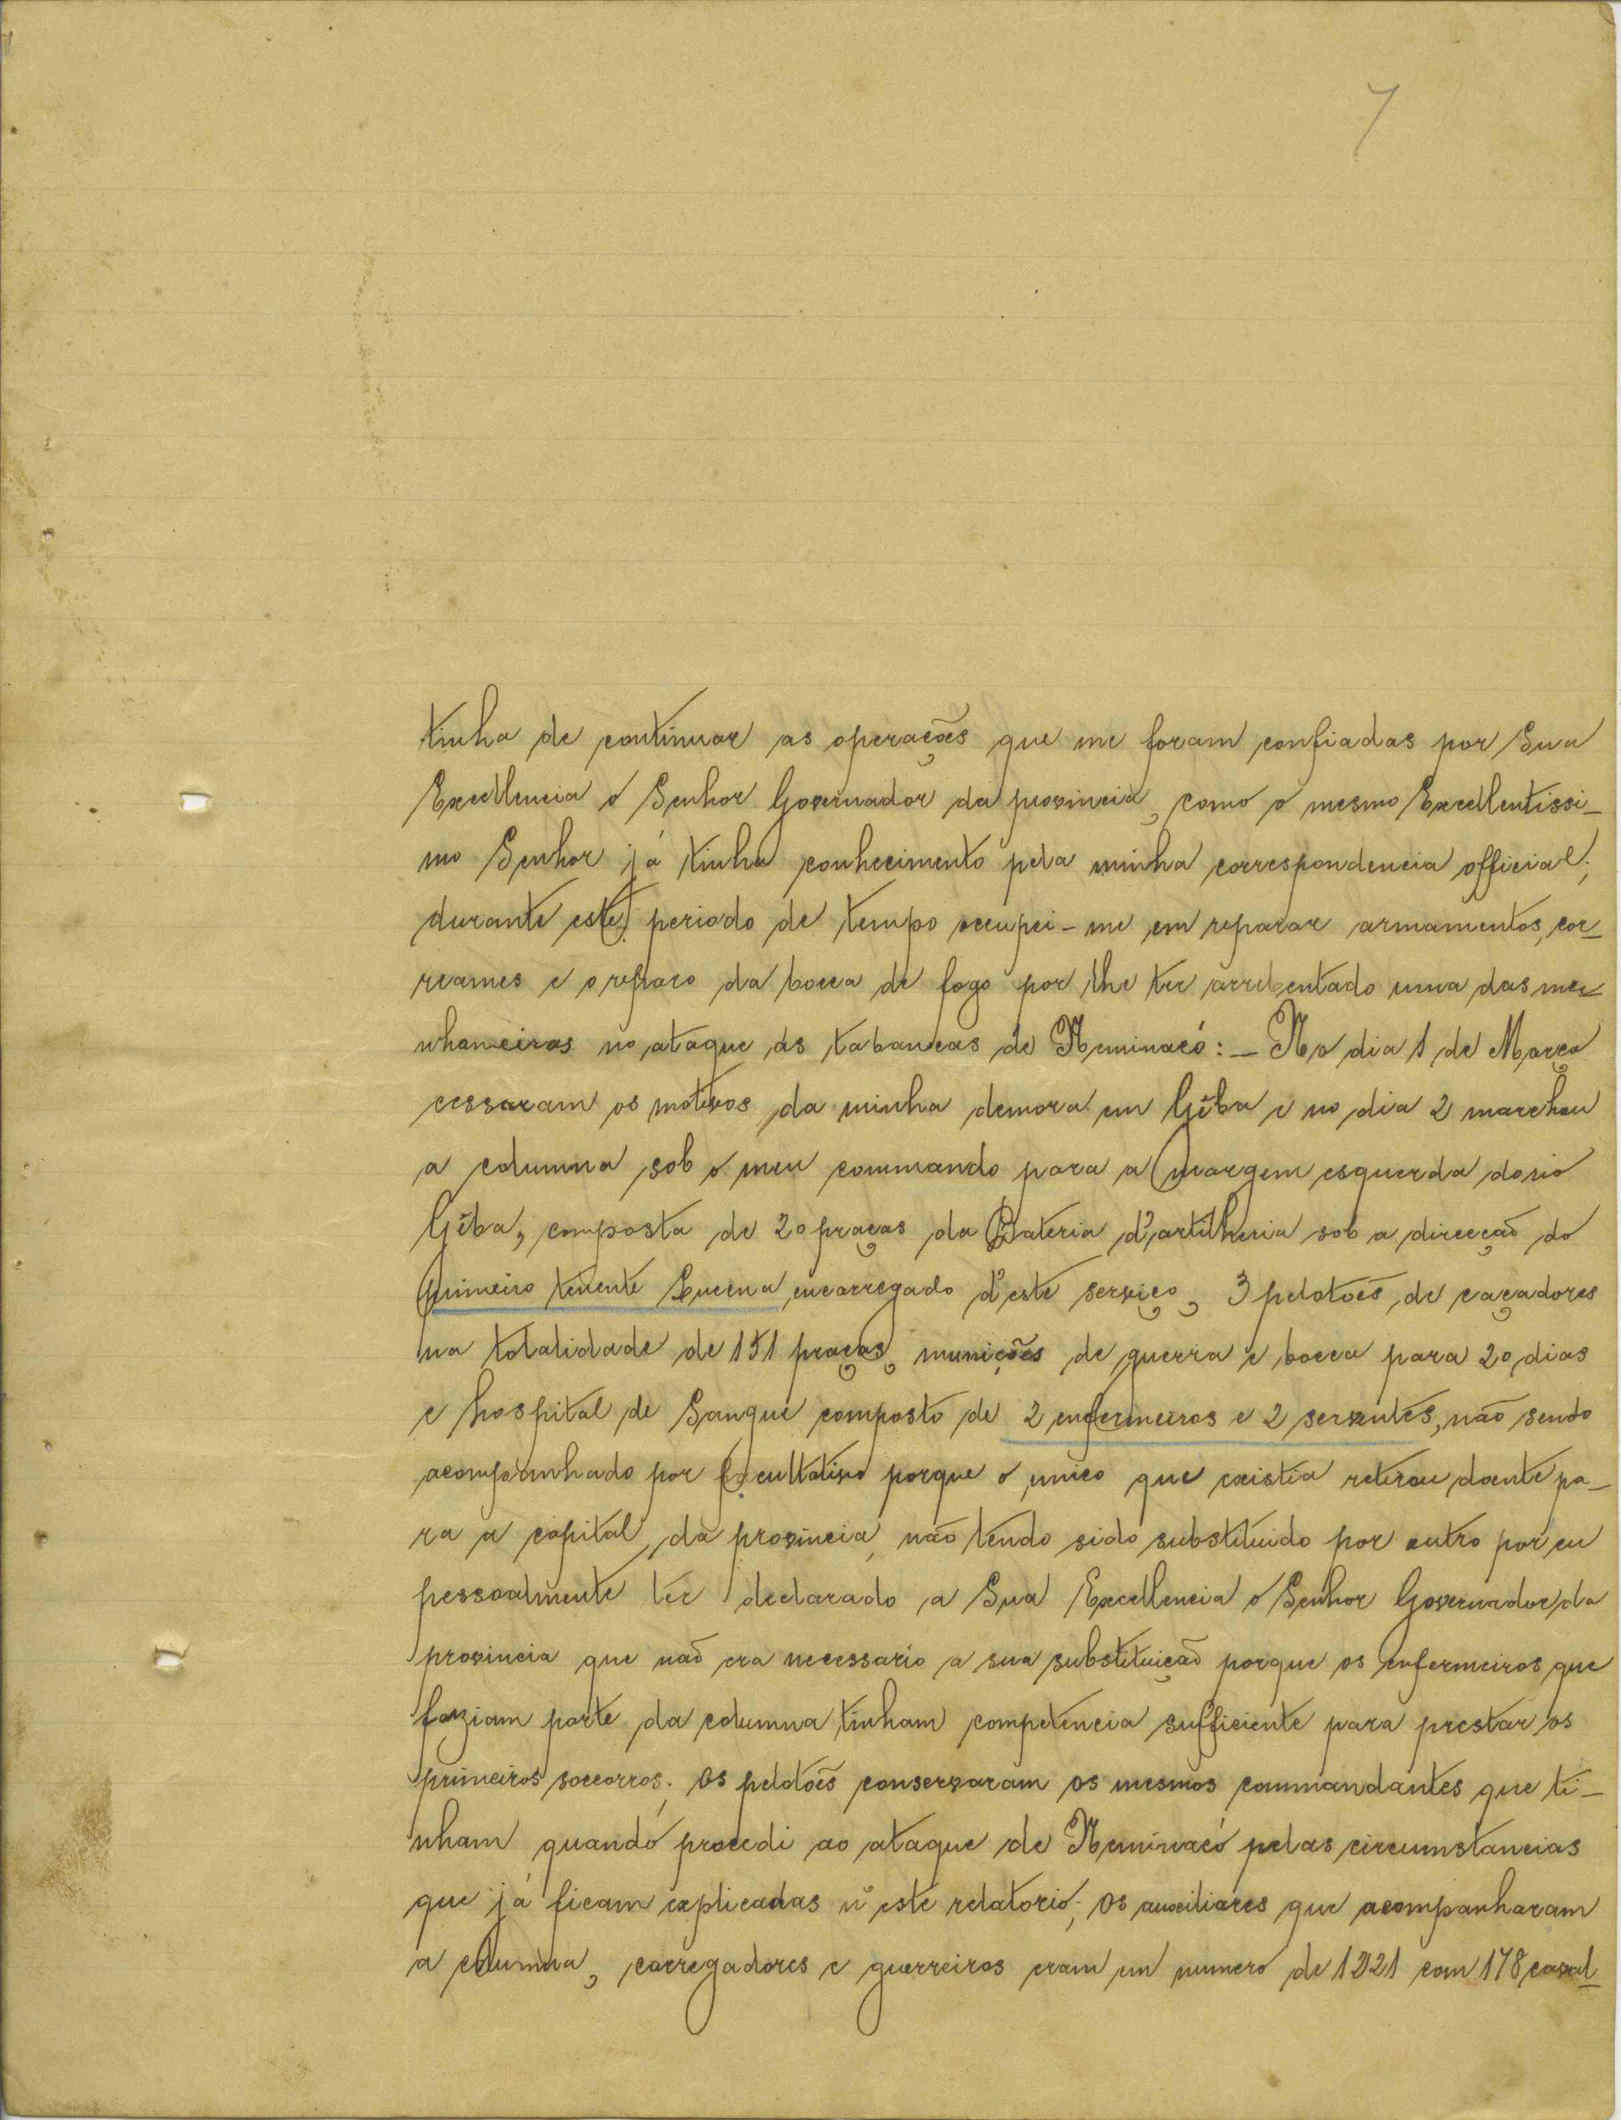 7
tinha de continuar as operações que me foram confiadas por Sua
Excellencia o Senhor Governador da provincia, como o mesmo Excellentissi-
mo Senhor já tinha conhecimento pela minha correspondencia official;
durante este periodo de tempo occupei-me em reparar armamentos, cor-
reames e o reparo da bocca de fogo por lhe ter arrebentado uma das mu-
nhoneiras no ataque ás tabancas de Neminacó:- No dia 1 de Março
cessaram os motivos da minha demora em Gêba e no dia 2 marchou
a columna sob o meu commando para a margem esquerda do rio
Gêba, composta de 20 praças da Bateria d'artilheria sob a direcção do
primeiro tenente Lucena, encarregado d'este serviço, 3 pelotões de caçadores
na totalidade de 151 praças, munições de guerra e bocca para 20 dias
e hospital de Sangue composto de 2 enfermeiros e 2 serventes, não sendo
acompanhado por facultativo porque o unico que existia retirou doente pa-
ra a capital da provincia, não tendo sido substituido por outro por eu
pessoalmente ter declarado a Sua Excellencia o Senhor Governador da
provincia que não era necessario a sua substituição porque os enfermeiros que
faziam parte da columna tinham competencia sufficiente para prestar os
primeiros soccorros. Os pelotões conservaram os mesmos commandantes que ti-
nham quando procedi ao ataque de Neminacó pelas circumstancias
que já ficam explicadas n'este relatorio; os auxiliares que acompanharam
a columna, carregadores e guerreiros eram em numero de 1221 com 178 caval-